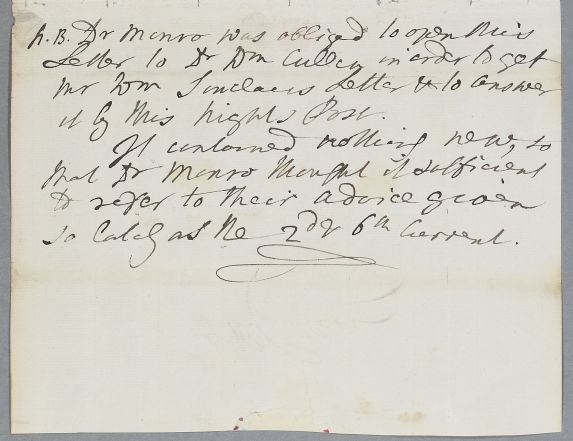 N.B. Dr Monro was obliged to open this
Letter to Dr Wm Cullen in order to get
Mr Wm Sinclairs Letter & to answer
it by this nights Post.
It contained nothing new, so
that Dr Monro thought it sufficient
to refer to their advice given
so lately as the 2d & 6th Current.